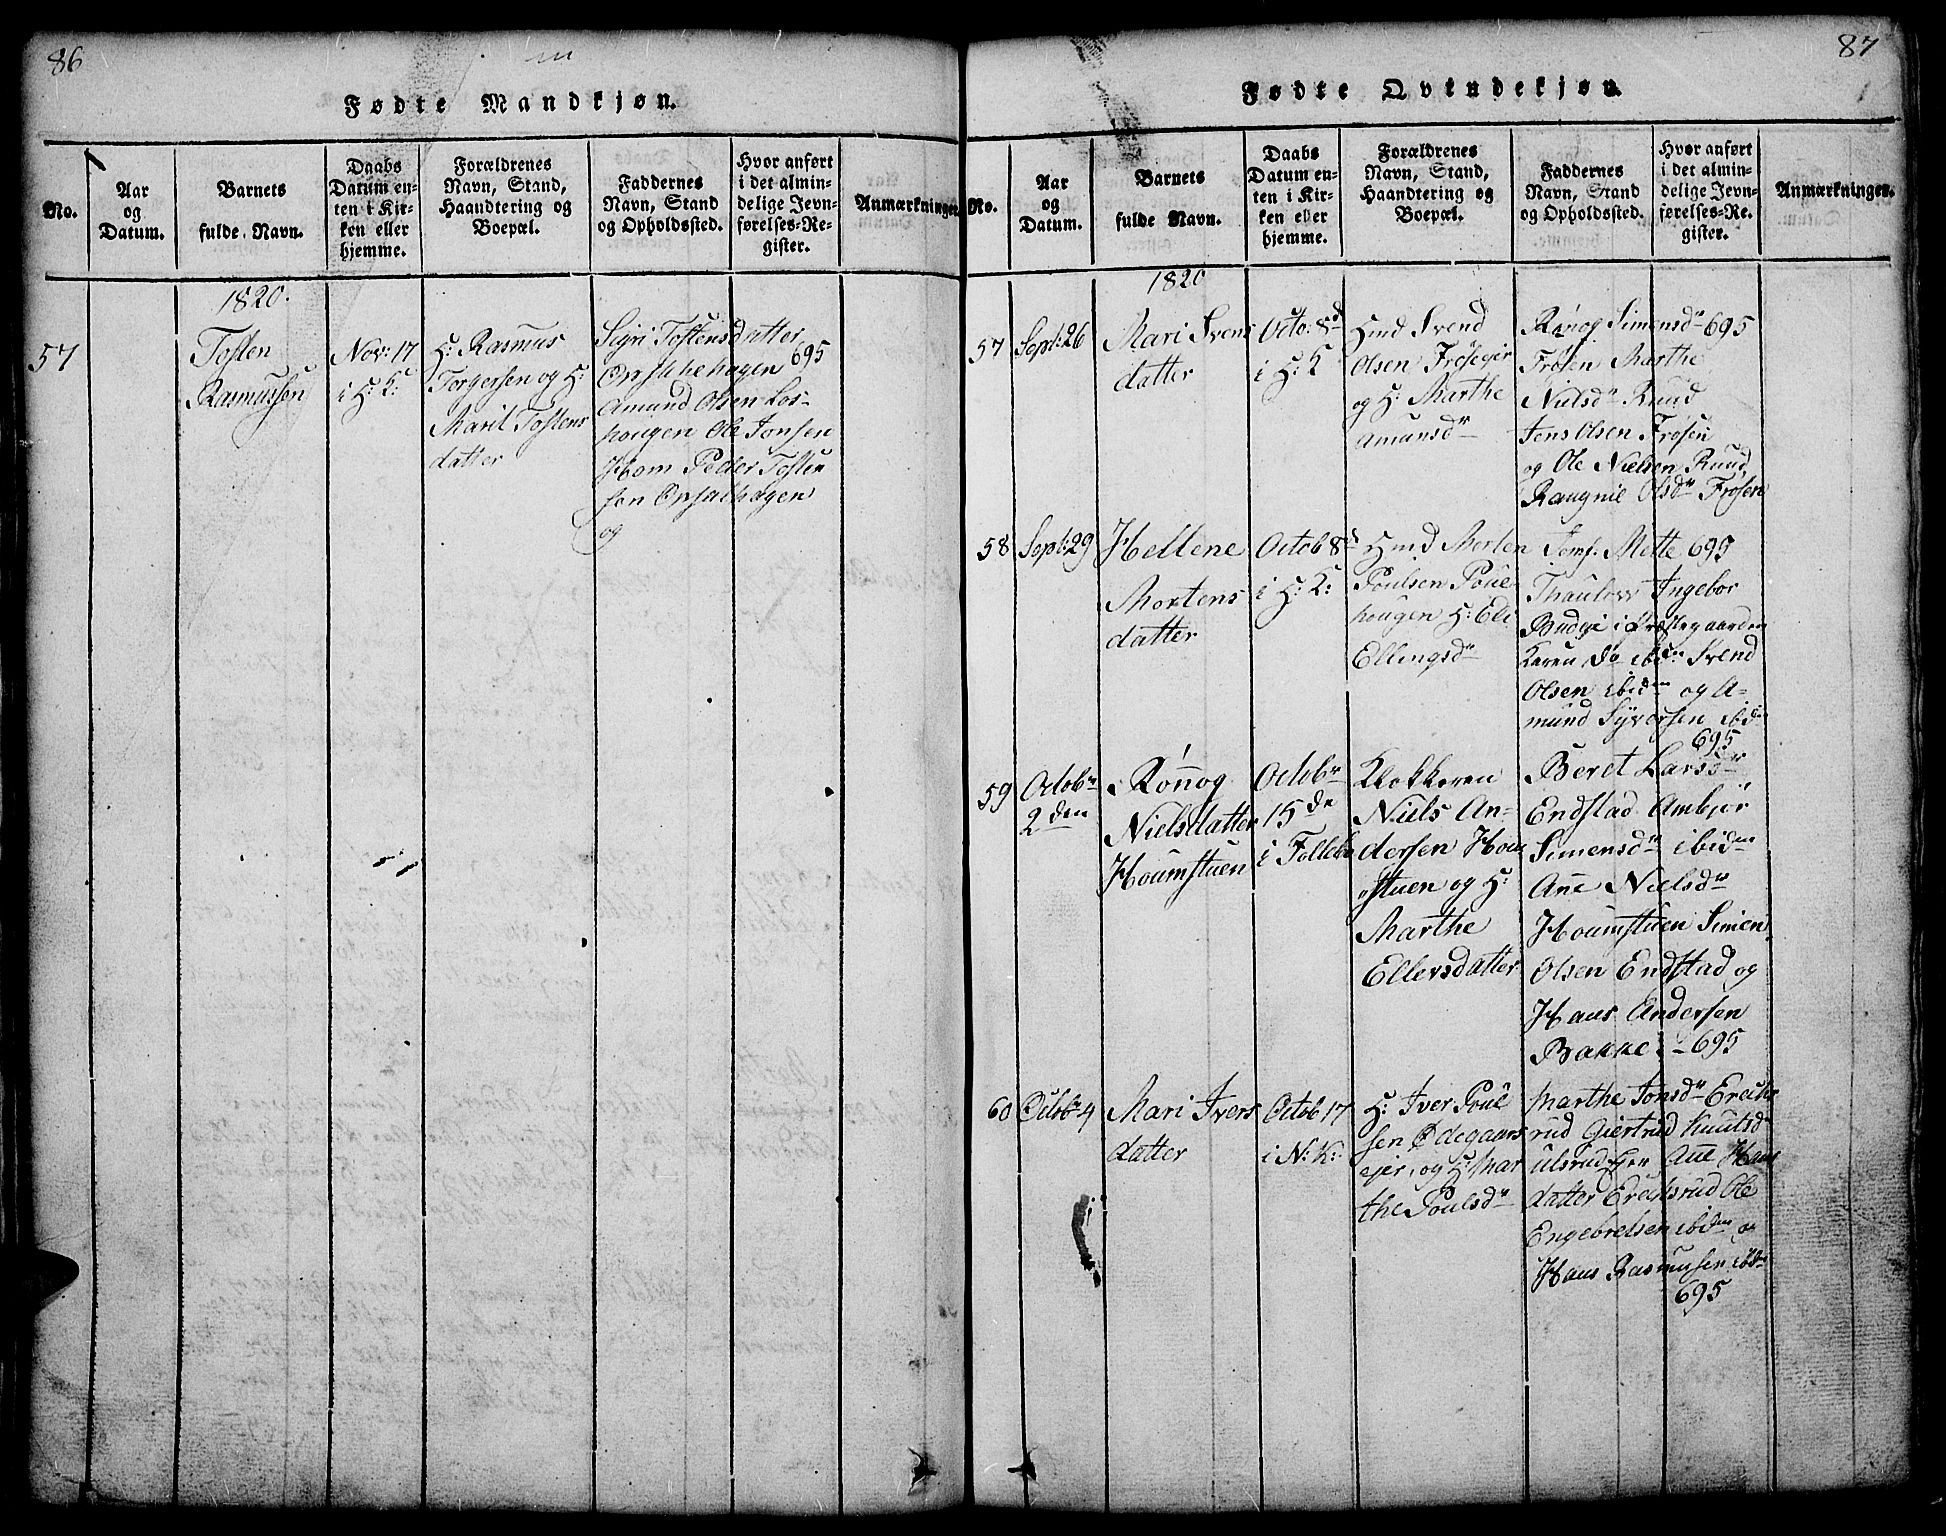 86
Fødte Mandkjøn.
No.
Aar
og
Datum.
Barnets
fulde Navn.
Daabs
Datum en-
ten i Kir-
ken eller
hjemme.
Forældrenes
Navn, Stand,
Haandtering og
Boepæl.
Faddernes
Navn, Stand
og Opholdssted.
Hvor anført
i det almin-
delige Jevn-
førelses-Re-
gister.
Anmærkninger.
1820.
57
Tosten
Rasmussen
Nov: 17
i H: K:
H: Rasmus
Torgersen og H:
Marit Tostens
datter
Sigri Tostensdatter
Opsalhehagen 695
Amund Olsen Los-
hougen Ole Jonsen
Hom Peder Tosten
sen Opsalhagen
og
87
Fødte Qvindekjøn.
No.
Aar
og
Datum.
Barnets
fulde Navn.
Daabs
Datum en-
ten i Kir-
ken eller
hjemme.
Forældrenes
Navn, Stand,
Haandtering og
Boepæl.
Faddernes
Navn, Stand
og Opholdssted.
Hvor anført
i det almin-
delige Jevn-
førelses-Re-
gister.
Anmærkninger.
1820
57
Sept: 26
Mari Svens
datter
Octo: 8d
i H: K
Hmd Svend
Olsen Frøseier
og H: Marthe
Amunsdr
Rønog Simensdr 695
Frøsen Marthe
Nielsdr Ruud
Jens Olsen Frøsen
og Ole Nielsen Ruud
Raugnil Olsdr Frøsen
58
Sept: 29
Hellene
Mortens
datter
Octob 8d
i H: K:
Hmd Morten
Poulsen Poul
hougen H: Eli
Ellingsdr
Jomf. Mette 695
Thaulow Ingebor
Budeie i Præstegaarden
Karen do ibidm Svend
Olsen ibidm og A-
mund Syversen ibidm
695
59
Octobr
2den
Rønnog
Nielsdatter
Houmstuen
Octobr
15de
i Follebo
Klokkeren
Niels An-
dersen Hom
stuen og H:
Marthe
Ellersdatter
Beret Larsdr
Endstad Ambjør
Simensdr ibidm
Ane Nielsdr
Houmstuen Simen
Olsen Endstad og
Hans Andersen
Bakke - 695
60
Octobr 4
Mari Ivers
datter
Octob 17
i N: K:
H: Iver Poul
sen Ødegaars
ejer, og H: Mar
the Poulsdr
Marthe Jonsdr Erichs
rud Giertrud Knutsd
Ulsrud Ejer Ane Hans
datter Erichsrud Ole
Engebretsen ibidm og
Hans Rasmusen ibidm
695